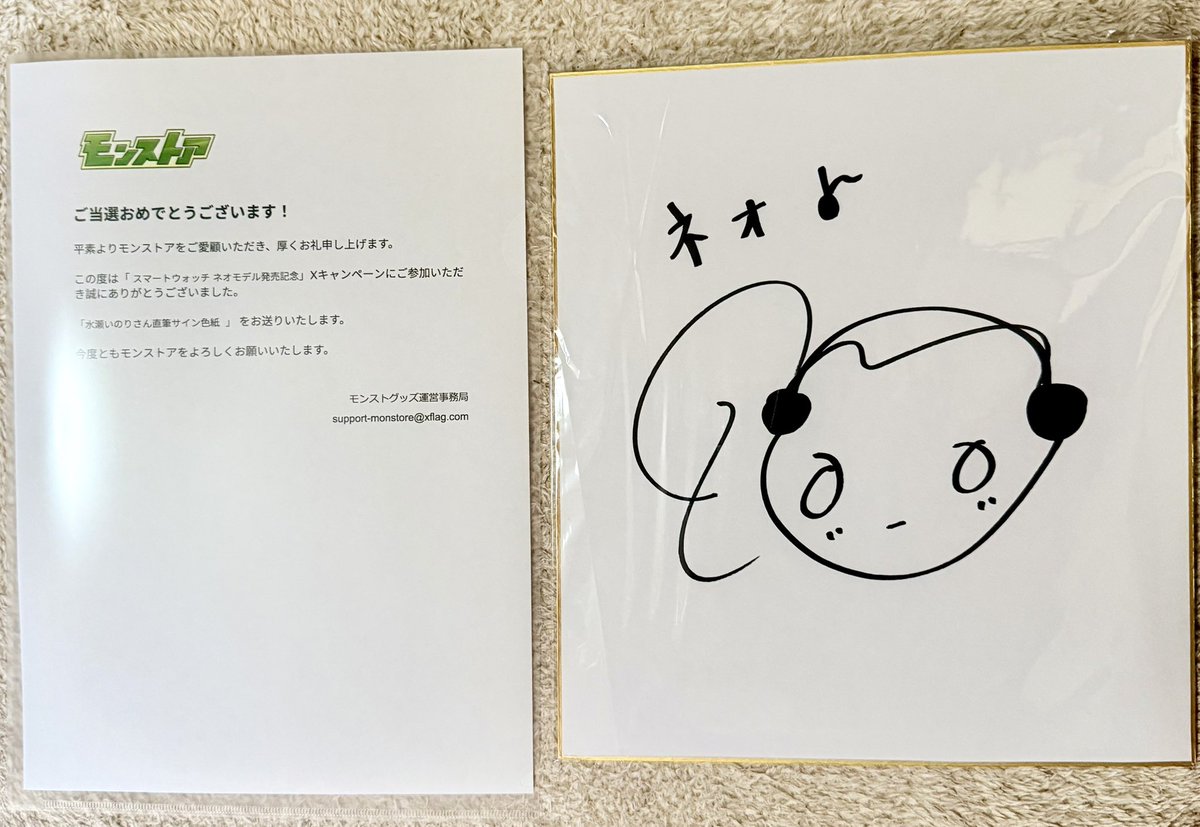 モンストア
ご当選おめでとうございます！
平素よりモンストアをご愛顧いただき、厚くお礼申し上げます。
この度は「 スマートウォッチ ネオモデル発売記念」Xキャンペーンにご参加いただ
き誠にありがとうございました。
「水瀬いのりさん直筆サイン色紙 」 をお送りいたします。
今度ともモンストアをよろしくお願いいたします。
モンストグッズ運営事務局
support-monstore@xflag.com
ネオ♪